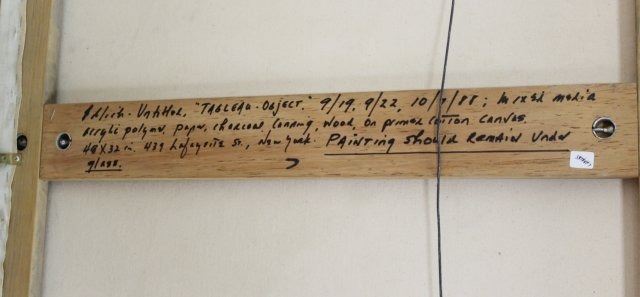 Untitled, "TABLEAU-OBJECT." 9/19, 9/22, 10/7/88; Mixed media
acrylic polymer, paper, charcoal, wood, on primed cotton canvas.
48X32 in. 439 Lafayette St., New York. PAINTING Should REMAIN Under
glass.